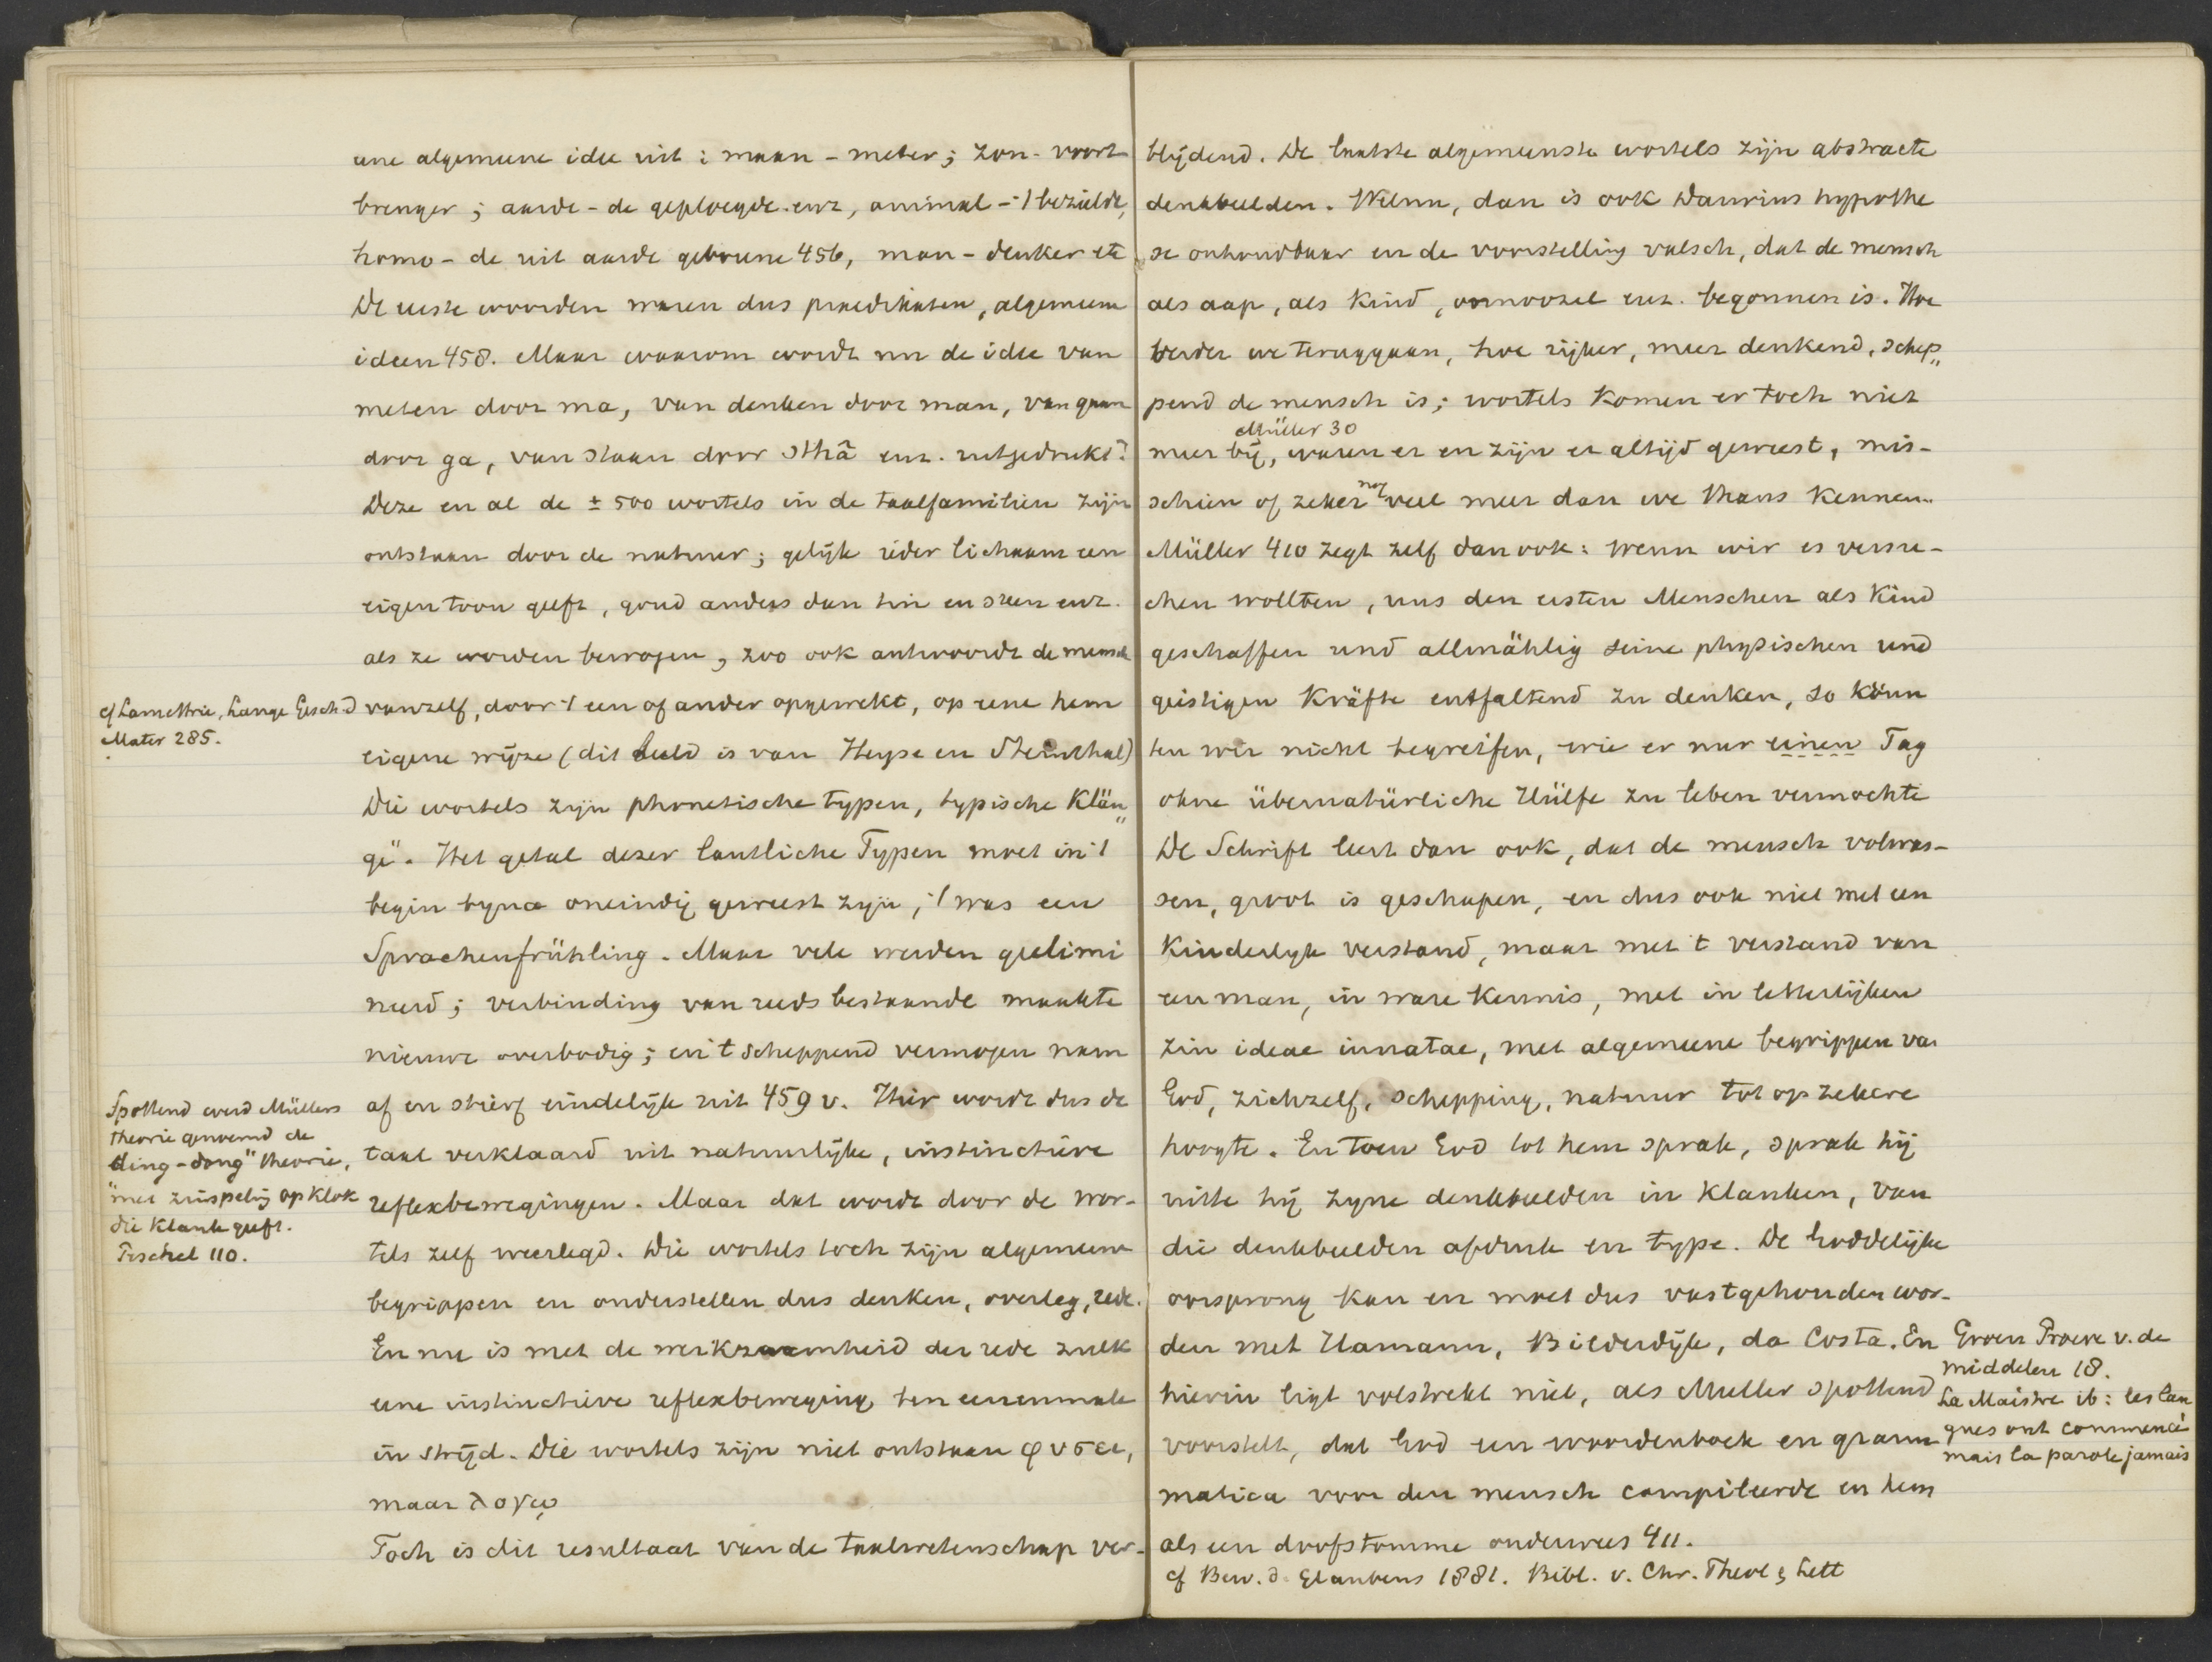 eene algemeene idee uit: maan - meter; zon - voort
brenger; aarde - de geploegde enz, animal - 't bezielde,
homo - de uit aarde geborene 456, man - denker etc
De eerste woorden waren dus praedikaten, algemeene
ideen 458. Maar waarom wordt nu de idee van
meten door ma, van denken door man, van gaan
door ga, van staan door sthâ enz. uitgedrukt?
Deze en al de ± 500 wortels in de taalfamilien zijn
ontstaan door de natuur; gelijk ieder lichaam een
eigen toon geeft, goud anders dan tin en steen enz.
als ze worden bewogen, zoo ook antwoordt de mensch
vanzelf, door 't een of ander opgewekt, op eene hem
eigene wijze (dit beeld is van Heyse en Steinthal)
Die wortels zijn phonetische typen, typische Klän„
ge". Het getal dezer lautliche Typen moet in 't
begin byna oneindig geweest zijn, 't was een
Sprachenfrühling. Maar vele werden geelimi
neerd; verbinding van reeds bestaande maakte
nieuwe overbodig; en 't scheppend vermogen nam
af en stierf eindelijk uit 459 v. Hier wordt dus de
taal verklaard uit natuurlijke, instinctieve
reflexbewegingen. Maar dat wordt door de wor-
tels zelf weerlegd. Die wortels toch zijn algemeene
begrippen en onderstellen dus denken, overleg, rede.
En nu is met de werkzaamheid der rede zulk
eene instinctieve reflexbeweging ten eenenmale
in strijd. Die wortels zijn niet ontstaan φυσει,
maar λογῳ
Toch is dit resultaat van de taalwetenschap ver-
cf Lamettrie, Lange Gesch d
Mater 285.
Spottend werd Müllers
theorie genoemd de
"ding-dong" theorie,
met zinspeling op klok
die klank geeft.
Peschel 110.
blijdend. De laatste algemeenste wortels zijn abstracte
denkbeelden. Welnu, dan is ook Darwins hypothe
se onhoudbaar en de voorstelling valsch, dat de mensch
als aap, als kind, onnoozel enz. begonnen is. Hoe
verder we teruggaan, hoe rijker, meer denkend, schep„
pend de mensch is; wortels komen er toch niet
Müller 30
meer bij, waren er en zijn er altijd geweest, mis-
schien of zeker nog veel meer dan we thans kennen.
Müller 410 zegt zelf dan ook: wenn wir es versu-
chen wollten, uns den ersten Menschen als Kind
geschaffen und allmählig seine physischen und
geistigen Kräfte entfaltend zu denken, so könn
ten wir nicht begreifen, wie er nur einen Tag
ohne übernatürliche Hülfe zu leben vermochte
De Schrift leert dan ook, dat de mensch volwas-
sen, groot is geschapen, en dus ook niet met een
Kinderlyk verstand, maar met 't verstand van
een man, in ware kennis, met in letterlijken
zin ideae innatae, met algemeene begrippen van
God, zichzelf, schepping, natuur tot op zekere
hoogte. En toen God tot hem sprak, sprak hij
uitte hij zyne denkbeelden in klanken, van
die denkbeelden afdruk en type. De Goddelijke
oorsprong kan en moet dus vastgehouden wor-
den met Hamann, Bilderdijk, da Costa. En
hierin ligt volstrekt niet, als Muller spottend
voorstelt, dat God een woordenboek en gram
matica voor den mensch compileerde en hem
als een doofstomme onderwees 411.
cf Bew. d. Glaubens 1881. Bibl. v. Chr. Theol & Lett
Groen Proeve v. de
middelen 18.
La Maistre ib: les lan
gues ont commencé
mais la parole jamais